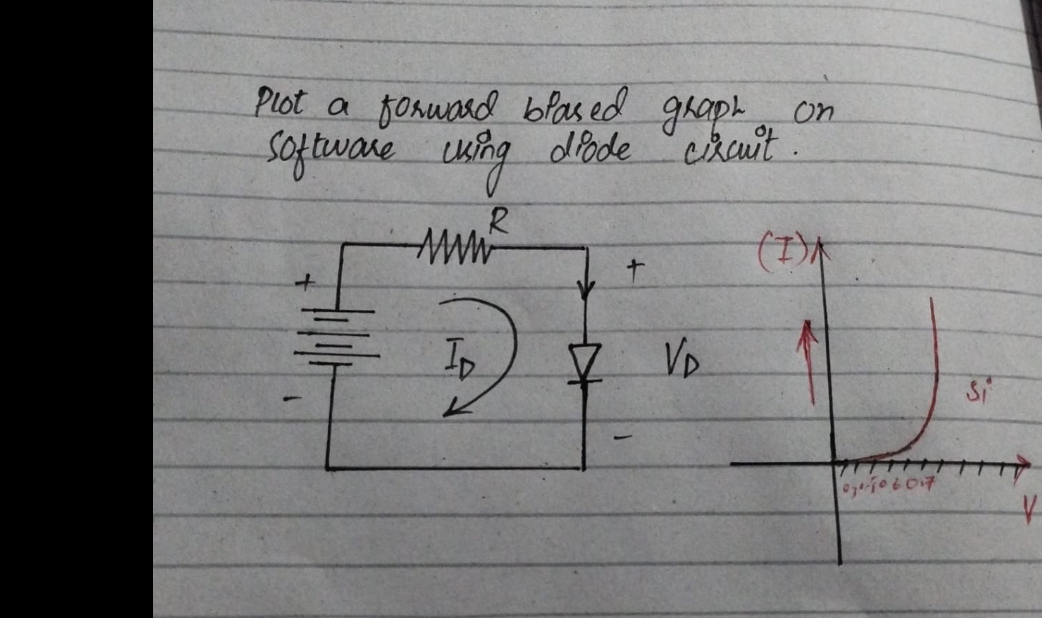 Plot a forward biased graph on
software using diode circuit.
R
(I)
+
+
I_D
V_D
Si
-
-
0.6 0.7
V